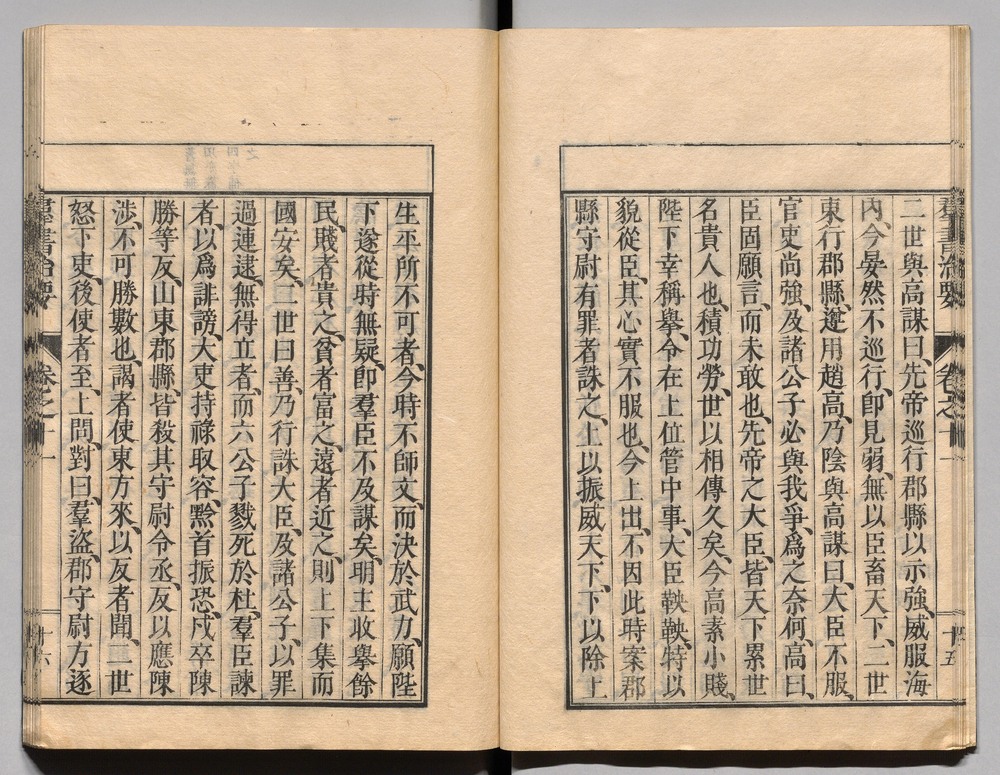 羣書治要 卷之十一 十五
二世與高謀曰、先帝巡行郡縣以示強、威服海
內、今晏然不巡行、卽見弱、無以臣畜天下、二世
東行郡縣、遵用趙高、乃陰與高謀曰、大臣不服、
官吏尚強、及諸公子必與我爭、爲之奈何、高曰、
臣固願言、而未敢也、先帝之大臣、皆天下累世
名貴人也、積功勞、世以相傳久矣、今高素小賤、
陛下幸稱舉、令在上位管中事、大臣鞅鞅、特以
貌從臣、其心實不服也、今上出、不因此時案郡
縣守尉有罪者誅之、上以振威天下、下以除上
生平所不可者、今時不師文、而決於武力、願陛
下遂從時無疑、卽羣臣不及謀矣、明主收舉餘
民、賤者貴之、貧者富之、遠者近之、則上下集而
國安矣、二世曰善、乃行誅大臣、及諸公子、以罪
過連逮、無得立者、而六公子戮死於杜、羣臣諫
者、以爲誹謗、大吏持祿取容、黔首振恐、戍卒陳
勝等反、山東郡縣皆殺其守尉令丞、反以應陳
涉、不可勝數也、謁者使東方來、以反者聞、二世
怒下吏、後使者至、上問、對曰、羣盜、郡守尉方逐
羣書治要 卷之十一 十六